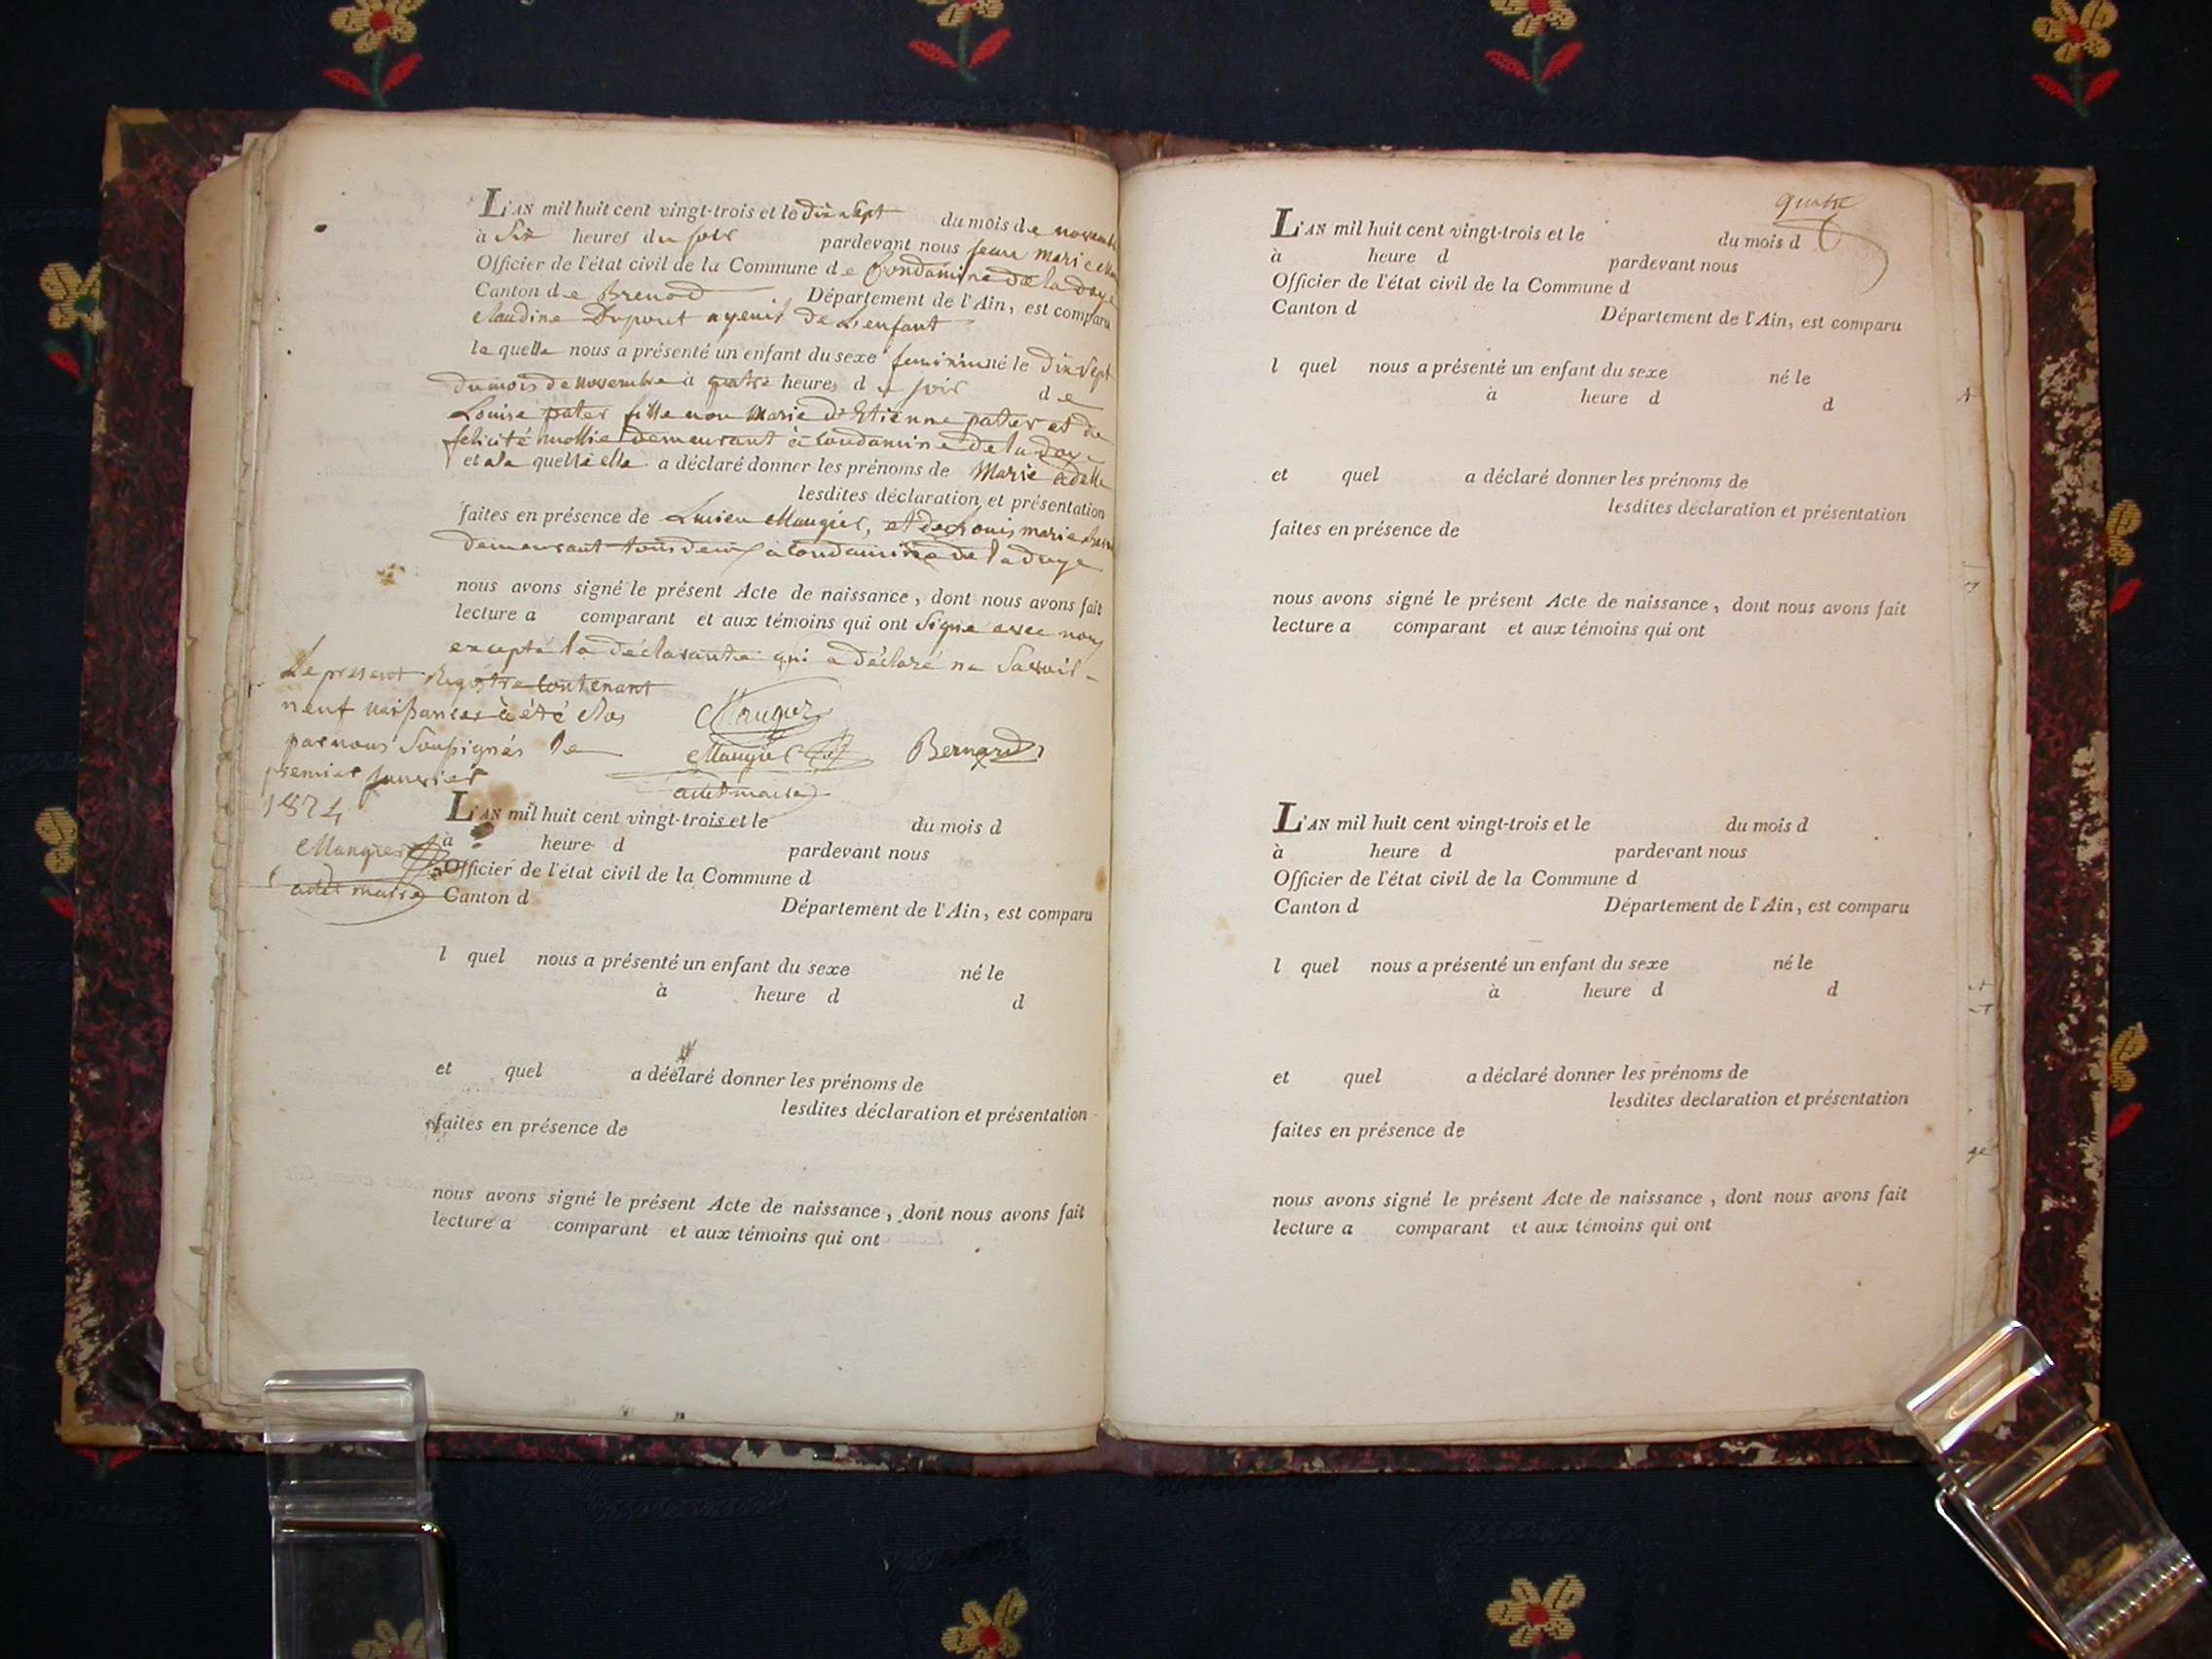 L'AN mil huit cent vingt-trois et le dix sept du mois de novembre
à Six heures du soir pardevant nous jean marie
Officier de l'état civil de la Commune de Condamine de la doye
Canton de Brenod Département de l'Ain, est comparu
Claudine Dupont de L'enfant
la quelle nous a présenté un enfant du sexe feminin né le Dix Sept
du mois de novembre à quatre heures du soir de
Louise pater fille non Marié d'Etienne pater et de
felicité mollie demeurant à Condamine de la doye
et a la quelle elle a déclaré donner les prénoms de Marie adelle
lesdites déclaration et présentation
faites en présence de Lucien Maugier, et de Louis marie
demeurant tous deux a Condamine de la doye
nous avons signé le présent Acte de naissance, dont nous avons fait
lecture a comparant et aux témoins qui ont Signé avec nous
excepté la déclarante qui a déclaré ne Savoir
Le present Registre Contenant
neuf naissances à été Clos
par nous Soussignés le
premier janvier
1824
Maugier
adjt maire
Maugier
Maugier
Bernard
adjt maire
L'AN mil huit cent vingt-trois et le du mois d
à heure d pardevant nous
Officier de l'état civil de la Commune d
Canton d Département de l'Ain, est comparu
l quel nous a présenté un enfant du sexe né le
à heure d d
et quel a déclaré donner les prénoms de
lesdites déclaration et présentation
faites en présence de
nous avons signé le présent Acte de naissance, dont nous avons fait
lecture a comparant et aux témoins qui ont
quatre
L'AN mil huit cent vingt-trois et le du mois d
à heure d pardevant nous
Officier de l'état civil de la Commune d
Canton d Département de l'Ain, est comparu
l quel nous a présenté un enfant du sexe né le
à heure d d
et quel a déclaré donner les prénoms de
lesdites déclaration et présentation
faites en présence de
nous avons signé le présent Acte de naissance, dont nous avons fait
lecture a comparant et aux témoins qui ont
L'AN mil huit cent vingt-trois et le du mois d
à heure d pardevant nous
Officier de l'état civil de la Commune d
Canton d Département de l'Ain, est comparu
l quel nous a présenté un enfant du sexe né le
à heure d d
et quel a déclaré donner les prénoms de
lesdites déclaration et présentation
faites en présence de
nous avons signé le présent Acte de naissance, dont nous avons fait
lecture a comparant et aux témoins qui ont